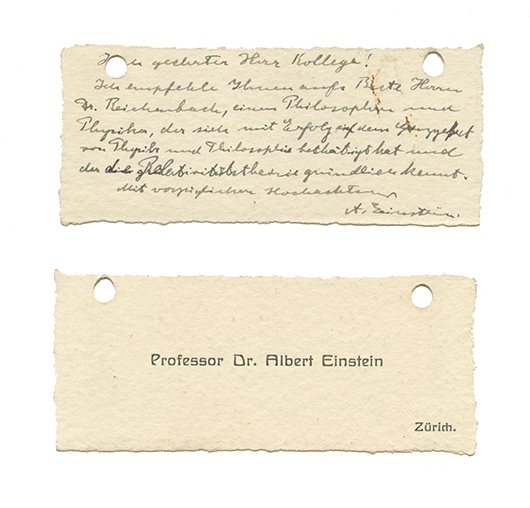 Hoch geehrter Herr Kollege!
Ich empfehle Ihnen aufs Beste Herrn
Dr. Reichenbach, einen Philosophen und
Physiker, der sich mit Erfolg auf dem Grenzgebiet
von Physik und Philosophie bethätigt hat und
der die Relativitätstheorie gründlich kennt.
Mit vorzüglicher Hochachtung
A. Einstein.
Professor Dr. Albert Einstein
Zürich.